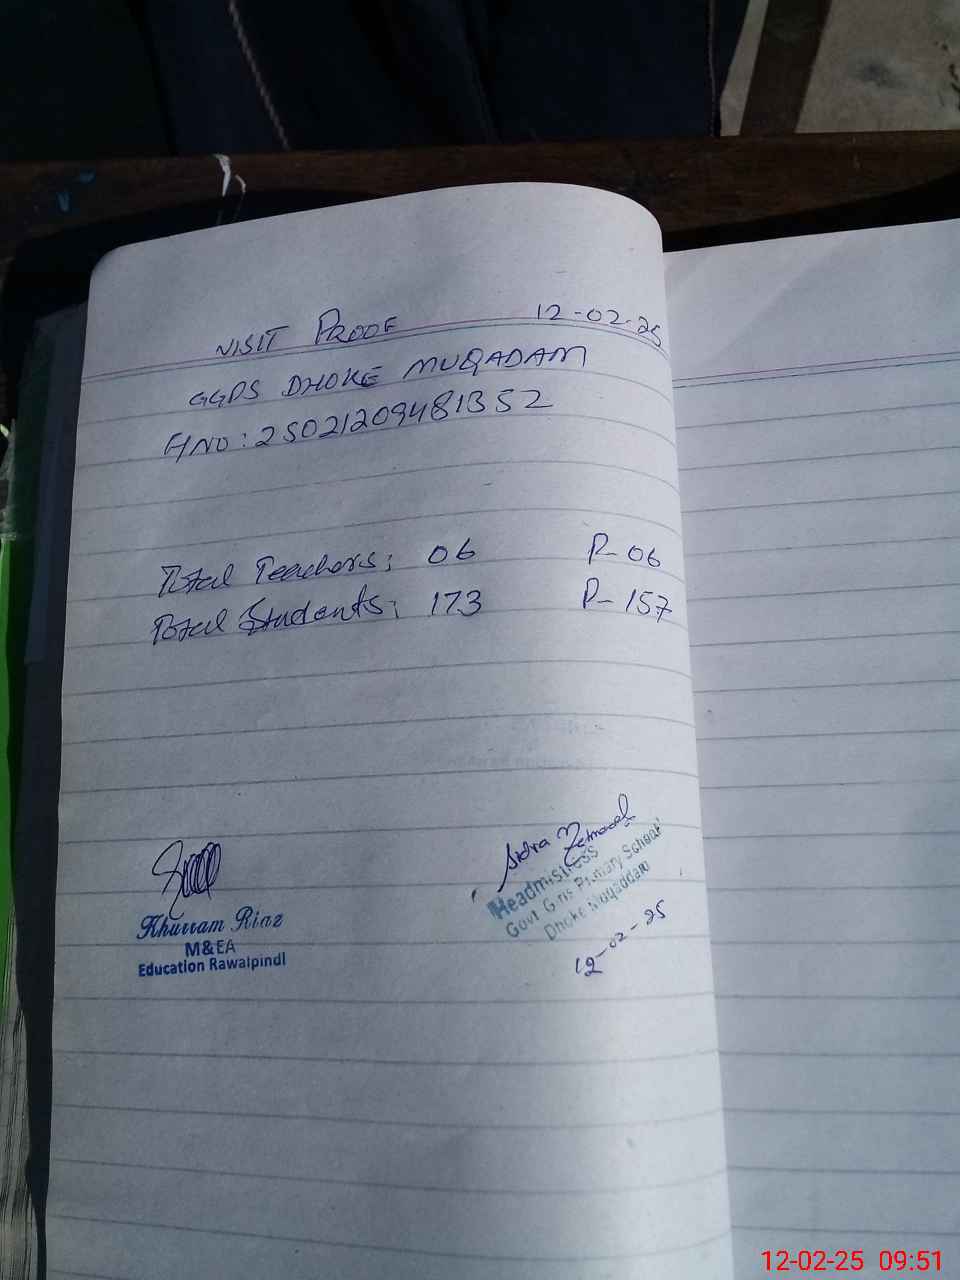 VISIT PROOF 12-02-25
GGPS DHOKE MUQADAM
A/NO: 25021209481352
Total Teachers: 06 P-06
Total Students: 173 P-157
Khurram Riaz
M&EA
Education Rawalpindi
Sidra
Headmistress
Govt. Girls Primary School
Dhoke Muqaddam
12-02-25
12-02-25 09:51